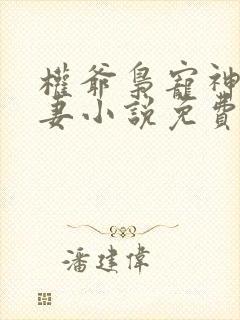 權爺梟寵神
妻小說免費
潘建偉